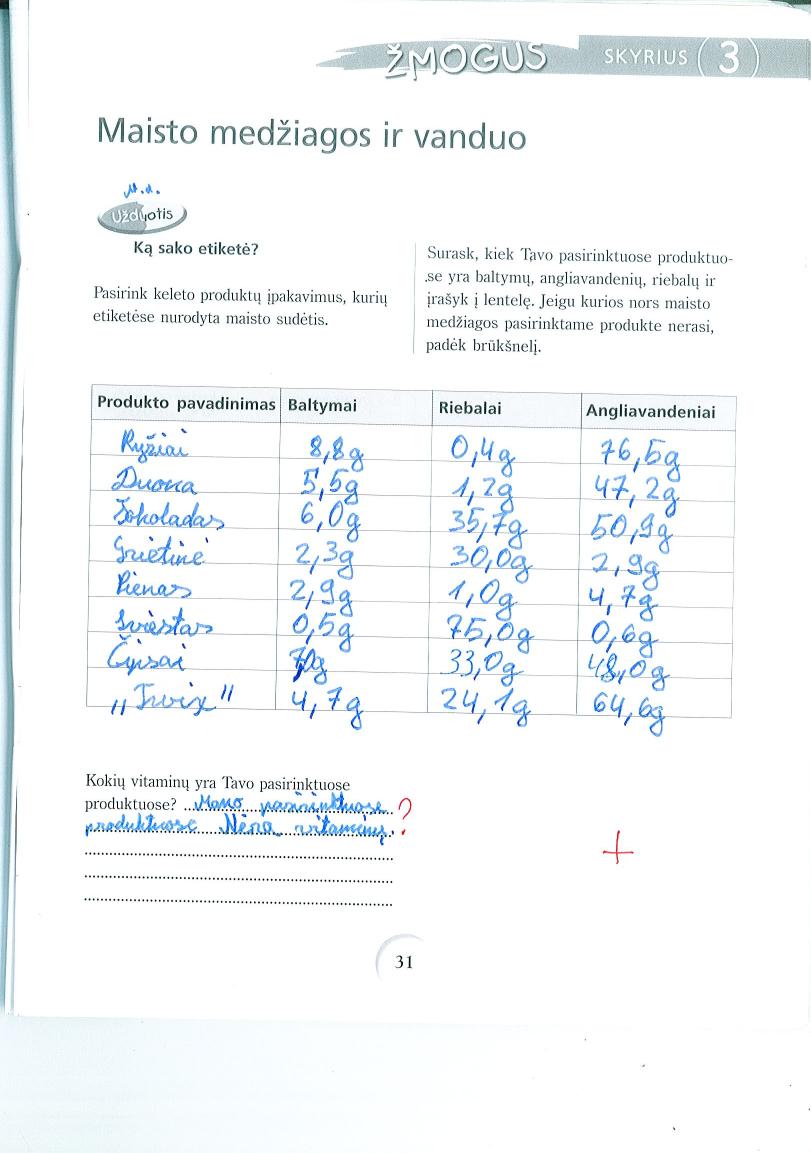 ŽMOGUS SKYRIUS 3
Maisto medžiagos ir vanduo
N.d.
Užduotis
Ką sako etiketė?
Pasirink keleto produktų įpakavimus, kurių
etiketėse nurodyta maisto sudėtis.
Surask, kiek Tavo pasirinktuose produktuo-
se yra baltymų, angliavandenių, riebalų ir
įrašyk į lentelę. Jeigu kurios nors maisto
medžiagos pasirinktame produkte nerasi,
padėk brūkšnelį.
Produkto pavadinimas Baltymai Riebalai Angliavandeniai
Ryžiai 8,8g 0,4g 76,5g
Duona 5,5g 1,2g 47,2g
Šokoladas 6,0g 35,7g 50,9g
Grietinė 2,3g 30,0g 2,9g
Pienas 2,9g 1,0g 4,7g
Sviestas 0,5g 75,0g 0,6g
Čipsai 33,0g 48,0g
„Twix" 4,7g 24,1g 64,6g
Kokių vitaminų yra Tavo pasirinktuose
produktuose? Mano pasirinktuose ?
produktuose Nėra vitaminų.
+
31